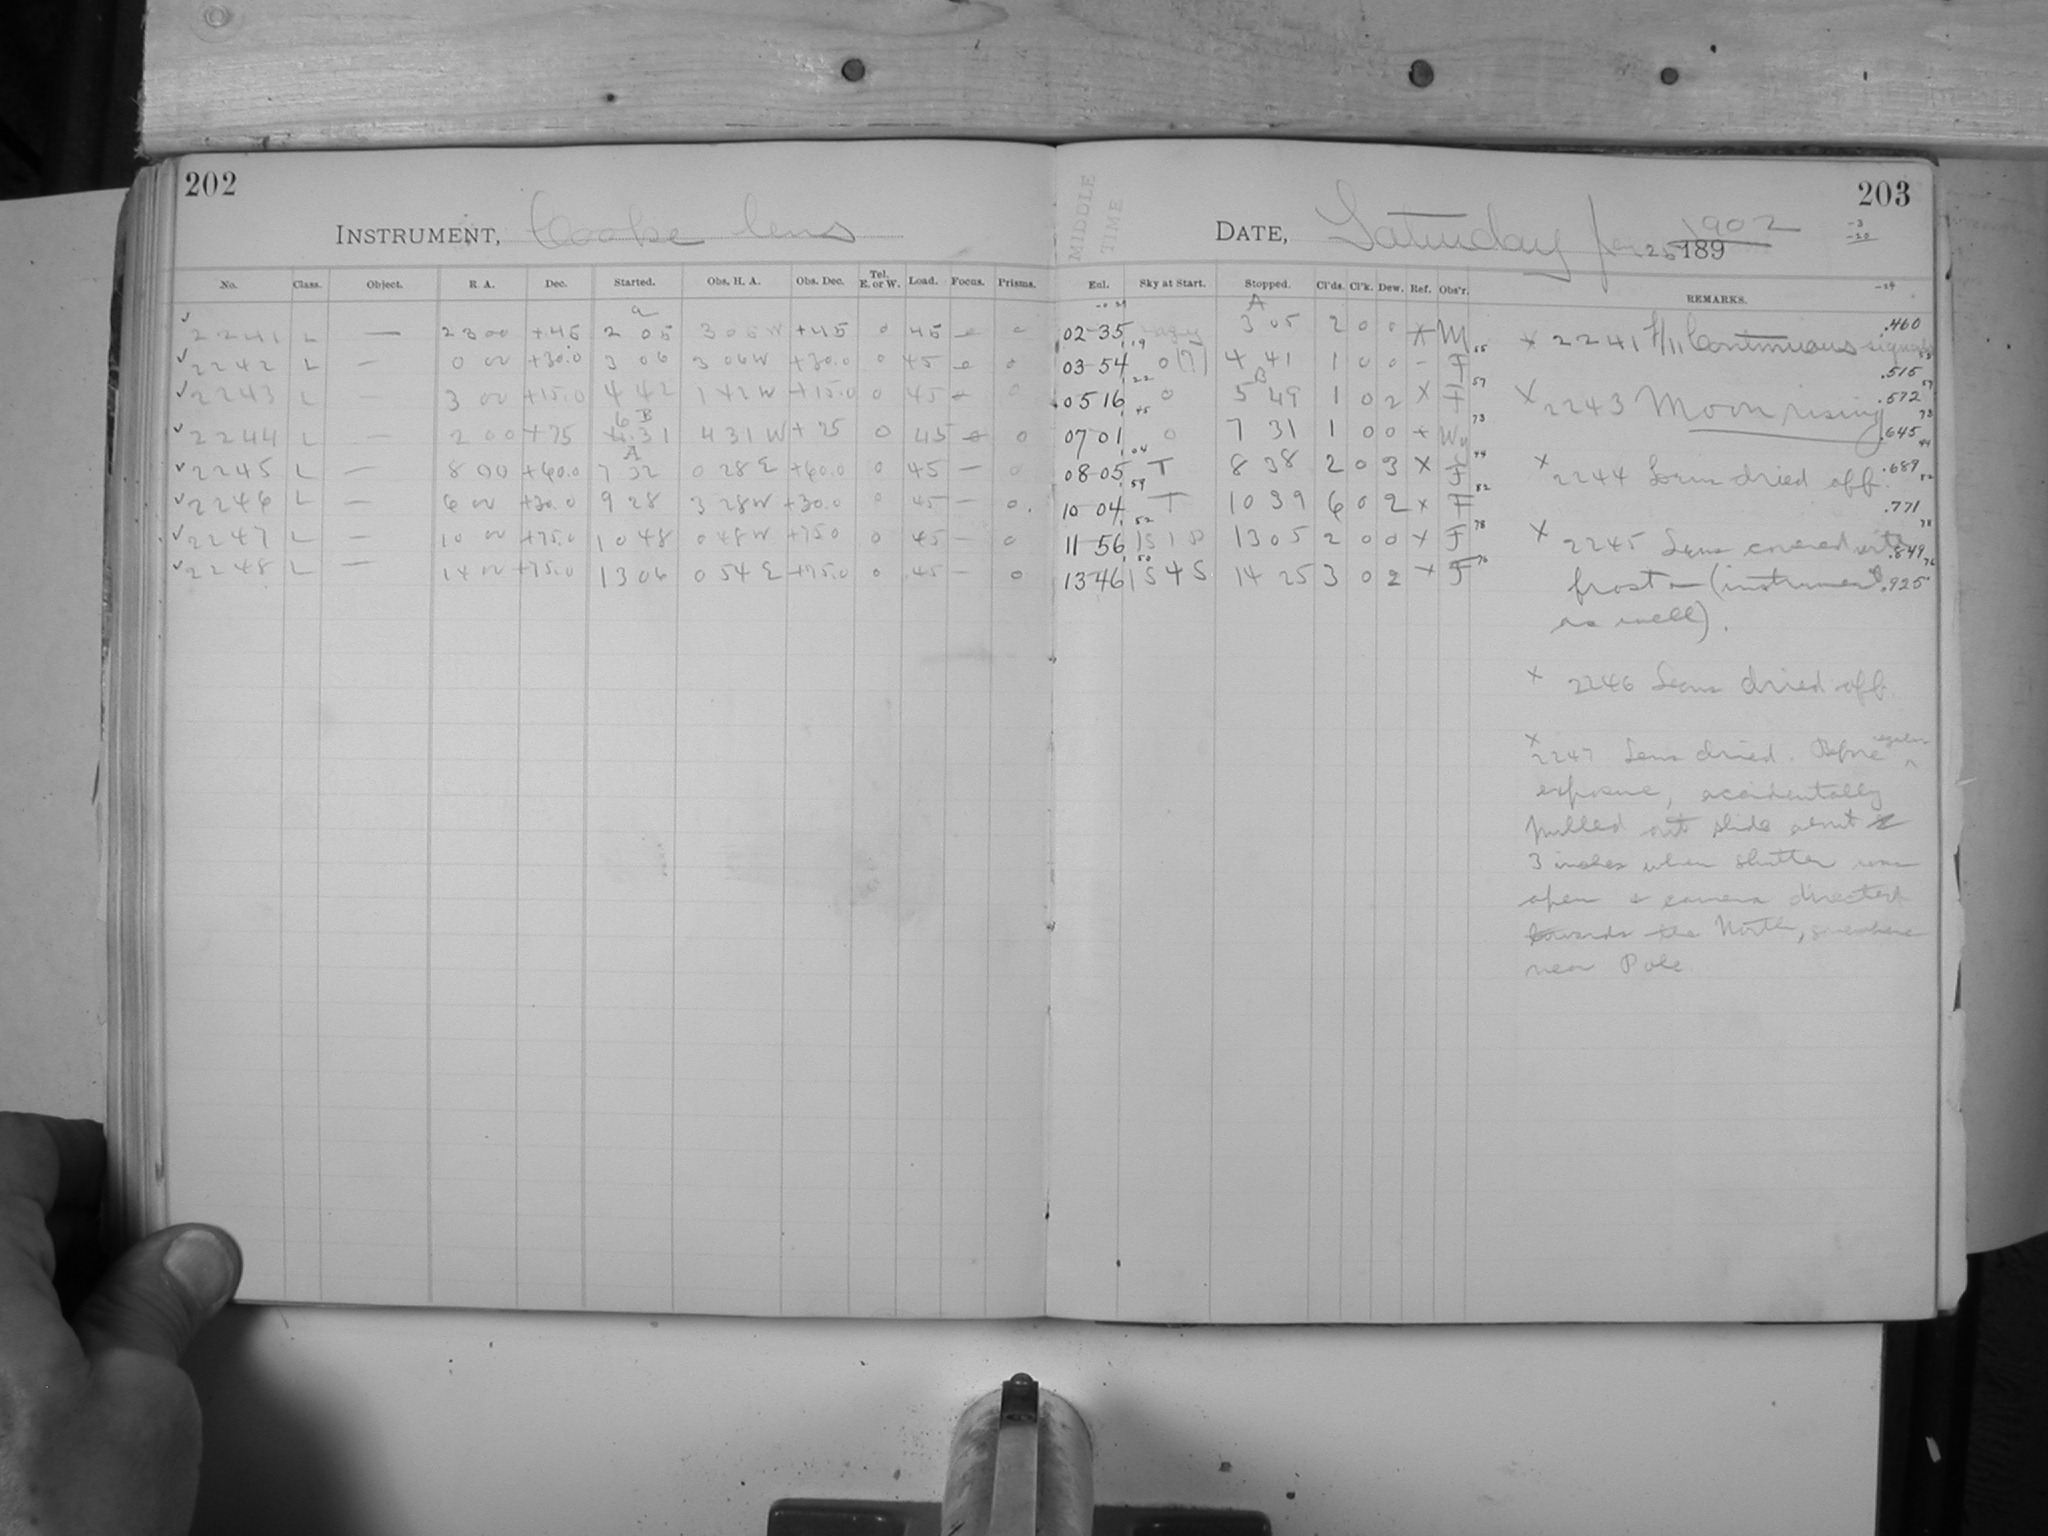 202
INSTRUMENT, Cooke lens
No. Class. Object. R. A. Dec. Started. Obs. H. A. Obs. Dec. Tel. E. or W. Load. Focus. Prisms.
a
✓ 2241 L — 23 00 +45 2 05 3 05 W +45 0 45 — 0
✓ 2242 L — 0 00 +30.0 3 06 3 06 W +30.0 0 45 — 0
✓ 2243 L — 3 00 +15.0 4 42 1 42 W +15.0 0 45 — 0
6 B
✓ 2244 L — 2 00 +75 4.31 4 31 W +75 0 45 — 0
A
✓ 2245 L — 8 00 +60.0 7 32 0 28 E +60.0 0 45 — 0
✓ 2246 L — 6 00 +30.0 9 28 3 28 W +30.0 0 45 — 0.
✓ 2247 L — 10 00 +75.0 10 48 0 48 W +75.0 0 45 — 0
✓ 2248 L — 14 00 +75.0 13 06 0 54 E +75.0 0 45 — 0
203
MIDDLE
TIME
DATE, Saturday Jan 25 1902
189
-3
-20
Enl. Sky at Start. Stopped. Cl'ds. Cl'k. Dew. Ref. Obs'r. REMARKS.
A
02 35 hazy 3 05 2 0 0 X M
03 54 0 (?) 4 41 1 0 0 - F
B
05 16 0 5 49 1 0 2 X F
07 01 0 7 31 1 0 0 X
08 05 T 8 38 2 0 3 X F
10 04 T 10 39 6 0 2 X F
11 56 13 05 2 0 0 X F
13 46 1 S 4 S 14 25 3 0 2 X F
.460
.515
.572
.645
.689
.771
.849
.925
X 2241 f/11 Continuous signals
X 2243 Moon rising
X 2244 Lens dried off.
X 2245 Lens covered with
frost — (instrument
as well).
X 2246 Lens dried off
X 2247 Lens dried. Before regular
exposure, accidentally
pulled out slide about
3 inches when shutter was
open & camera directed
towards the North, somewhere
near Pole